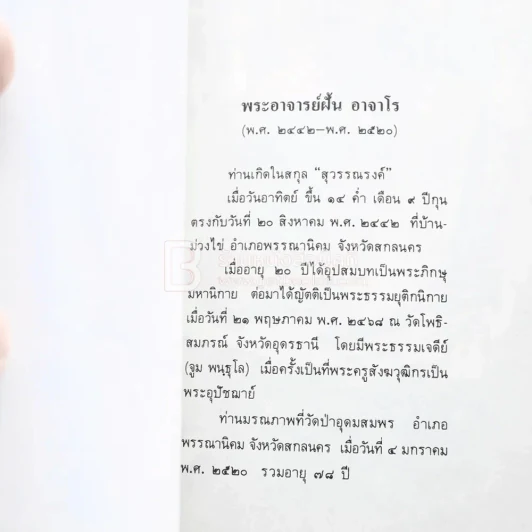 พระอาจารย์ฝั้น อาจาโร
(พ.ศ. ๒๔๔๒–พ.ศ. ๒๕๒๐)
ท่านเกิดในสกุล “สุวรรณรงค์”
เมื่อวันอาทิตย์ ขึ้น ๑๔ ค่ำ เดือน ๙ ปีกุน
ตรงกับวันที่ ๒๐ สิงหาคม พ.ศ. ๒๔๔๒ ที่บ้าน-
ม่วงไข่ อำเภอพรรณานิคม จังหวัดสกลนคร
เมื่ออายุ ๒๐ ปีได้อุปสมบทเป็นพระภิกษุ
มหานิกาย ต่อมาได้ญัตติเป็นพระธรรมยุติกนิกาย
เมื่อวันที่ ๒๑ พฤษภาคม พ.ศ. ๒๔๖๘ ณ วัดโพธิ-
สมภรณ์ จังหวัดอุดรธานี โดยมีพระธรรมเจดีย์
(จูม พนฺธุโล) เมื่อครั้งเป็นที่พระครูสังฆวุฒิกรเป็น
พระอุปัชฌาย์
ท่านมรณภาพที่วัดป่าอุดมสมพร อำเภอ
พรรณานิคม จังหวัดสกลนคร เมื่อวันที่ ๔ มกราคม
พ.ศ. ๒๕๒๐ รวมอายุ ๗๘ ปี